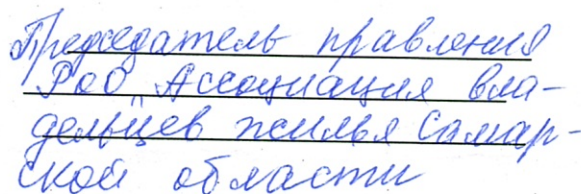 Председатель правления
РоО "Ассоциация вла-
дельцев жилья Самар-
ской области